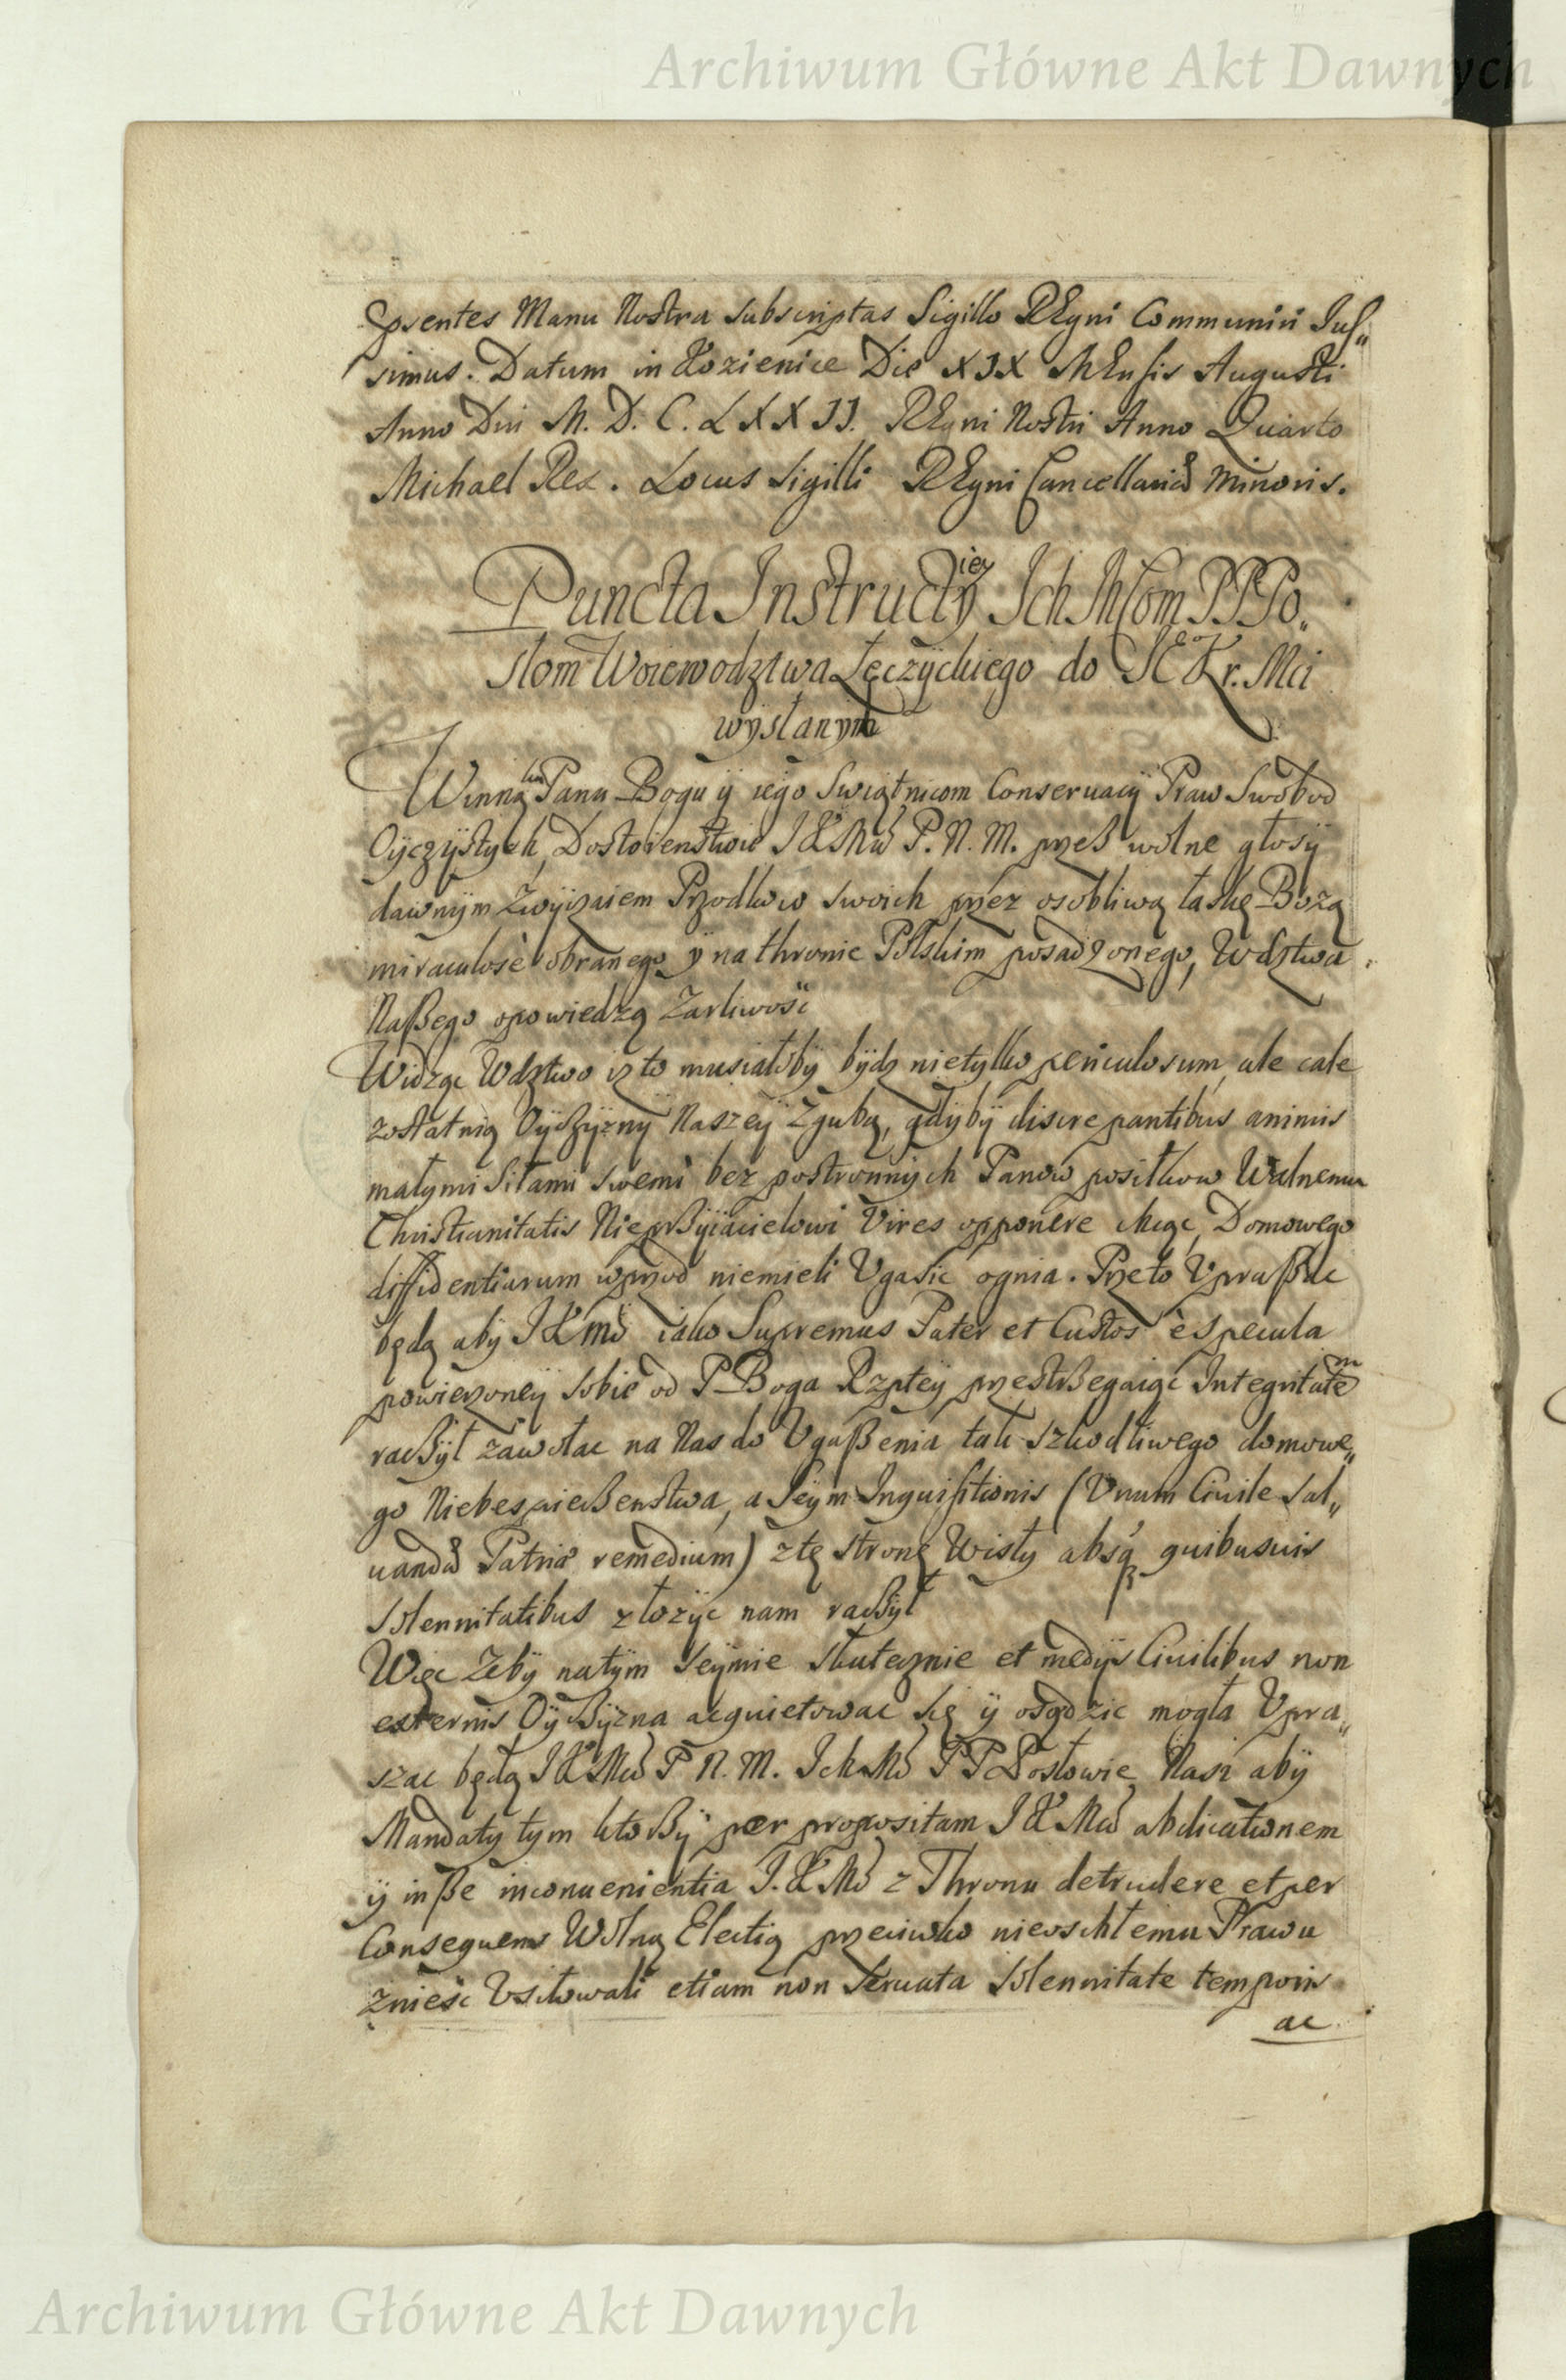 Archiwum Główne Akt Dawnych
pṛsentes Manu Nostra subscriptas Sigillo REgni Communiri Jus„
simus. Datum in Kozienice Die XIX MEnsis Augusti
Anno Dni M. D. C. L X X II. REgni Nostri Anno Quarto
Michael Rex. Locus Sigilli REgni Cancellariæ Minoris.
Puncta Instructÿiey Ich Mſom P P Po„
słom Woiewodztwa Łęczÿckiego do JE Kr. Mci
wÿsłanym
Winną ku Panu Bogu ÿ iego Swiątnicom Conseruacÿ Praw Swobod
Oÿczÿstych, Dostoienstwie J K Mći P. N. M. przeß wolne głosÿ
dawnÿm Zwÿczaiem Przodkow swoich przez osobliwą łaskę Bożą
miraculosè obranego ÿ na thronie Polskim posadzonego, Wdztwa
Naßego opowiedzą Zarliwośc
Widząc Wdztwo iz to musiałobÿ bÿdz nietylko periculosum, ale cale
zostatnią Oÿczÿznÿ Naszeÿ Zgubą, gdÿbÿ discrepantibus animis
małymi Siłami swemi bez postronnÿch Panow posiłkow Walnemu
Christianitatis Nieprzÿiacielowi Vires opponere chcąc, Domowego
diffidentiarum wprzod niemieli Vgasic ognia. Przeto Vpraßac
będą abÿ J K Mć iako Supremus Pater et Custos è specula
powierzoneÿ sobie od P Boga Rzpteÿ przestßegaiąc Integritatem
racßÿł zawołac na Nas do Vgaßenia tak szkodliwego domowe„
go Niebespiecßenstwa, a Seÿm Inquisitionis (Vnum Ciuile sal„
uandæ Patriæ remedium) z tę stronę Wisły absq₃ quibusuis
solennitatibus złozÿc nam racßÿł
Więc Zebÿ natÿm Seÿmie skutecznie et medÿs Ciuilibus non
externis Oÿcßÿzna acquietowac się ÿ osądzic mogła Vpra„
szac będą J K Mći P N. M. Ich Mć P P Posłowie Nasi abÿ
Mandaty tym ktoßÿ per propositam J K Mći abdicationem
ÿ inße inconuenientia J. K Mć z Thronu detrudere et per
Consequens Wolną Electią przeciwko nieoschłemu Prawu
znieśc Vsiłowali etiam non seruata solennitate temporis
ac
Archiwum Główne Akt Dawnych